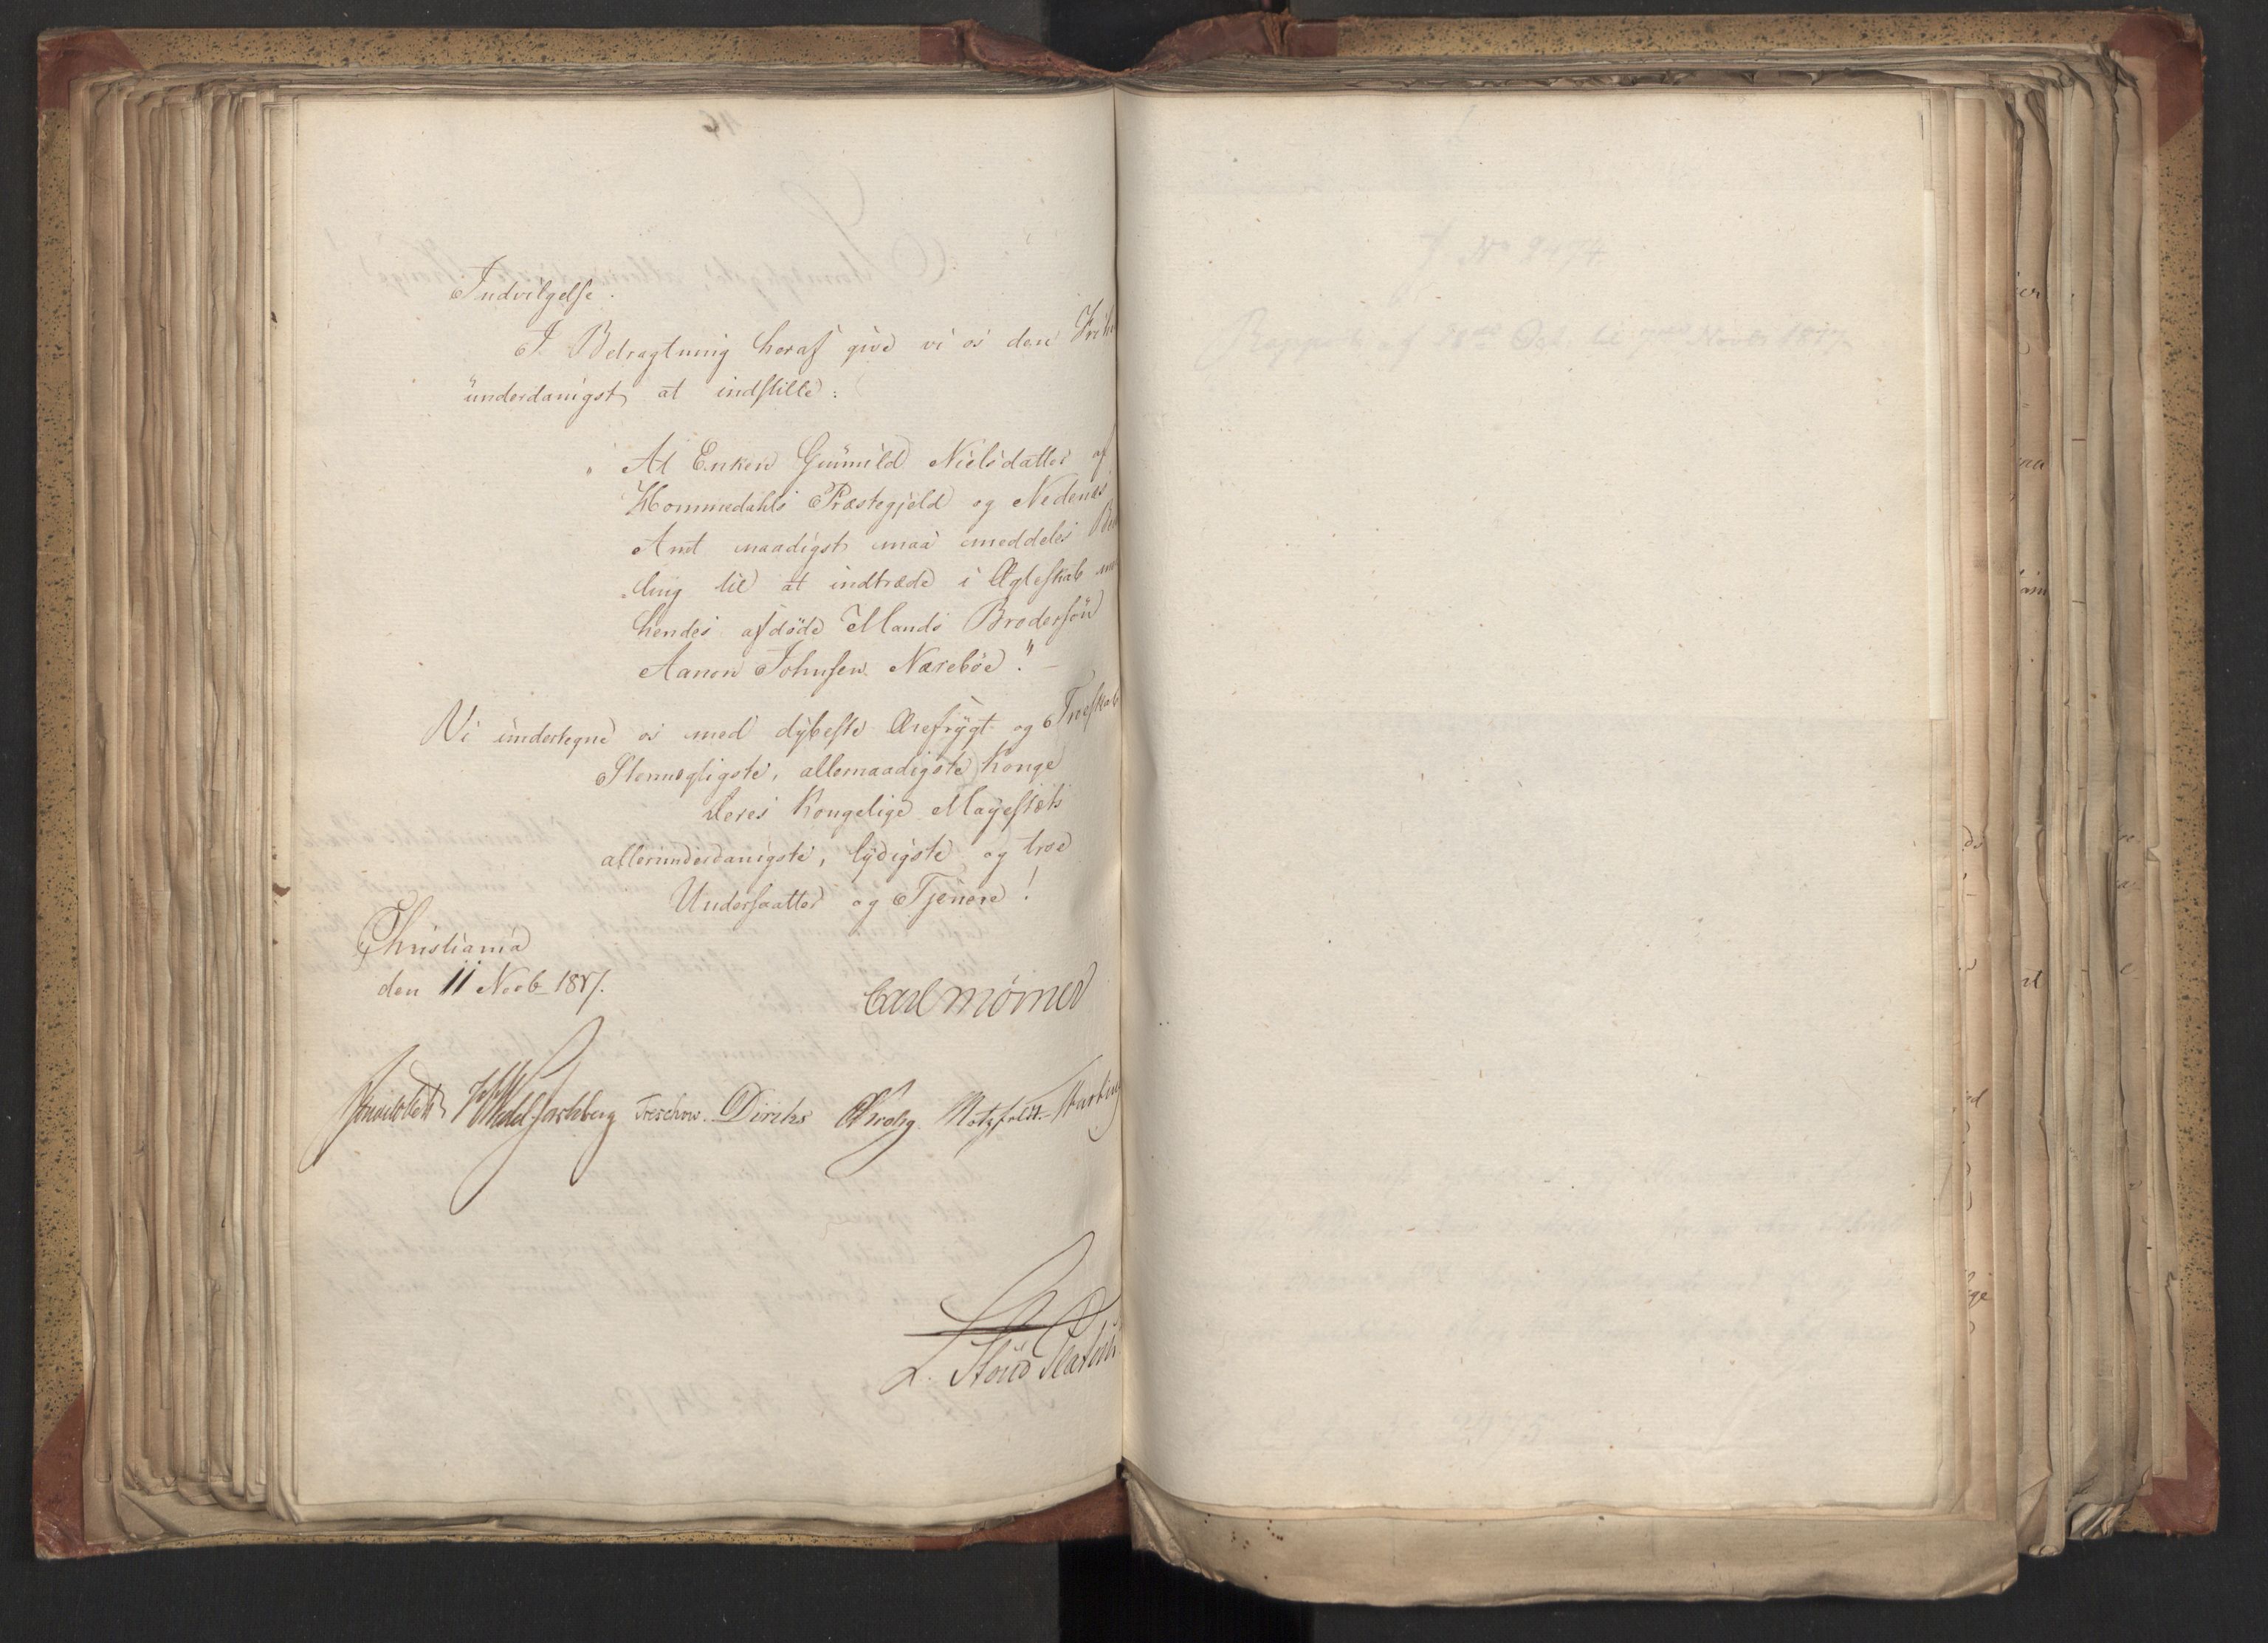 Indvilgelse.
I Betragtning heraf give vi os den Frihe
underdanigst at indstille:
„At Enken Gunnild Nielsdatter af
Hommedahls Præstegjeld og Nedenæs
Amt naadigst maa meddeles Be
„ling til at indtræde i Ægteskab me
hendes afdöde Mands Brodersön
Aanon Johnsen Narebøe." —
Vi undertegne os med dybeste Ærefrygt og Troeskab
Stormægtigste, allernaadigste Konge
Deres Kongelige Mayestæts
allerunderdanigste, lydigste og troe
Undersaatter og Tjenere!
Christiania
den 11 Novb 1817.
Carl Mörner
Sommerhielm HWedel Jarlsberg Treschow. Diriks CKrohg. Motzfeldt.
L. Stoud Platou
J No 2474
Rapport af Oct til Novbr 1817